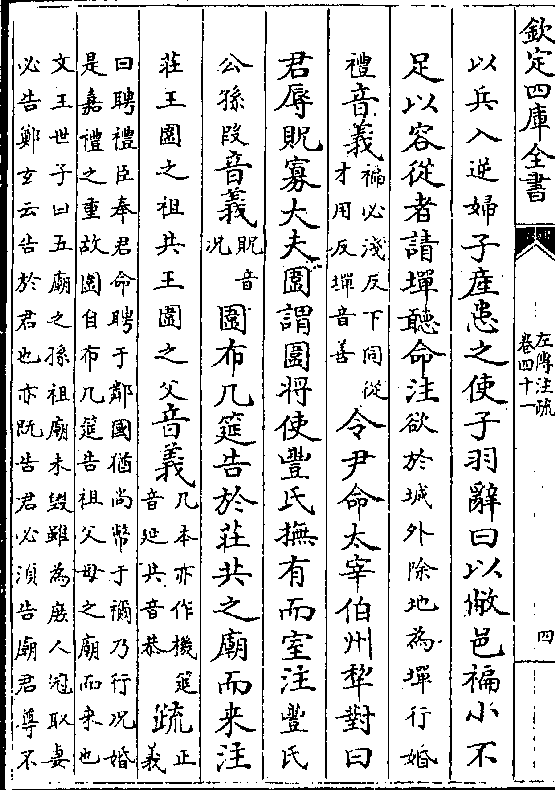 欽定四庫全書
左傳注疏
卷四十一
四
以兵入逆婦子産患之使子羽辭曰以敝邑褊小不
足以容從者請墠聽命注欲於城外除地為墠行婚
禮音義褊必淺反下同從
才用反墠音善
令尹命太宰伯州犂對曰
君辱貺寡大夫圍謂圍將使豐氏撫有而室注豐氏
公孫段音義貺音
况
圍布几筵告於莊共之廟而来注
莊王圍之祖共王圍之父音義几本亦作機筵
音延共音恭
疏正
義
曰聘禮臣奉君命聘于鄰國猶尚幣于禰乃行况婚
是嘉禮之重故圍自布几筵告祖父母之廟而来也
文王世子曰五廟之孫祖廟未毀雖為庶人冠取妻
必告鄭玄云告於君也亦既告君必須告廟君尊不